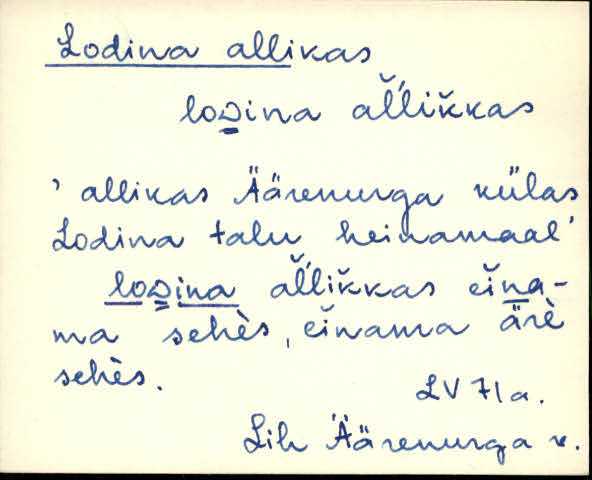 Lodina allikas
loᴅina al̆'lik̆kas
' allikas Äärenurga külas
Lodina talu heinamaal'
loᴅina al̆'lik̆kas eĭna-
ma sehès, eĭnama ärè
sehès.
LV 71a.
Lih Äärenurga k.